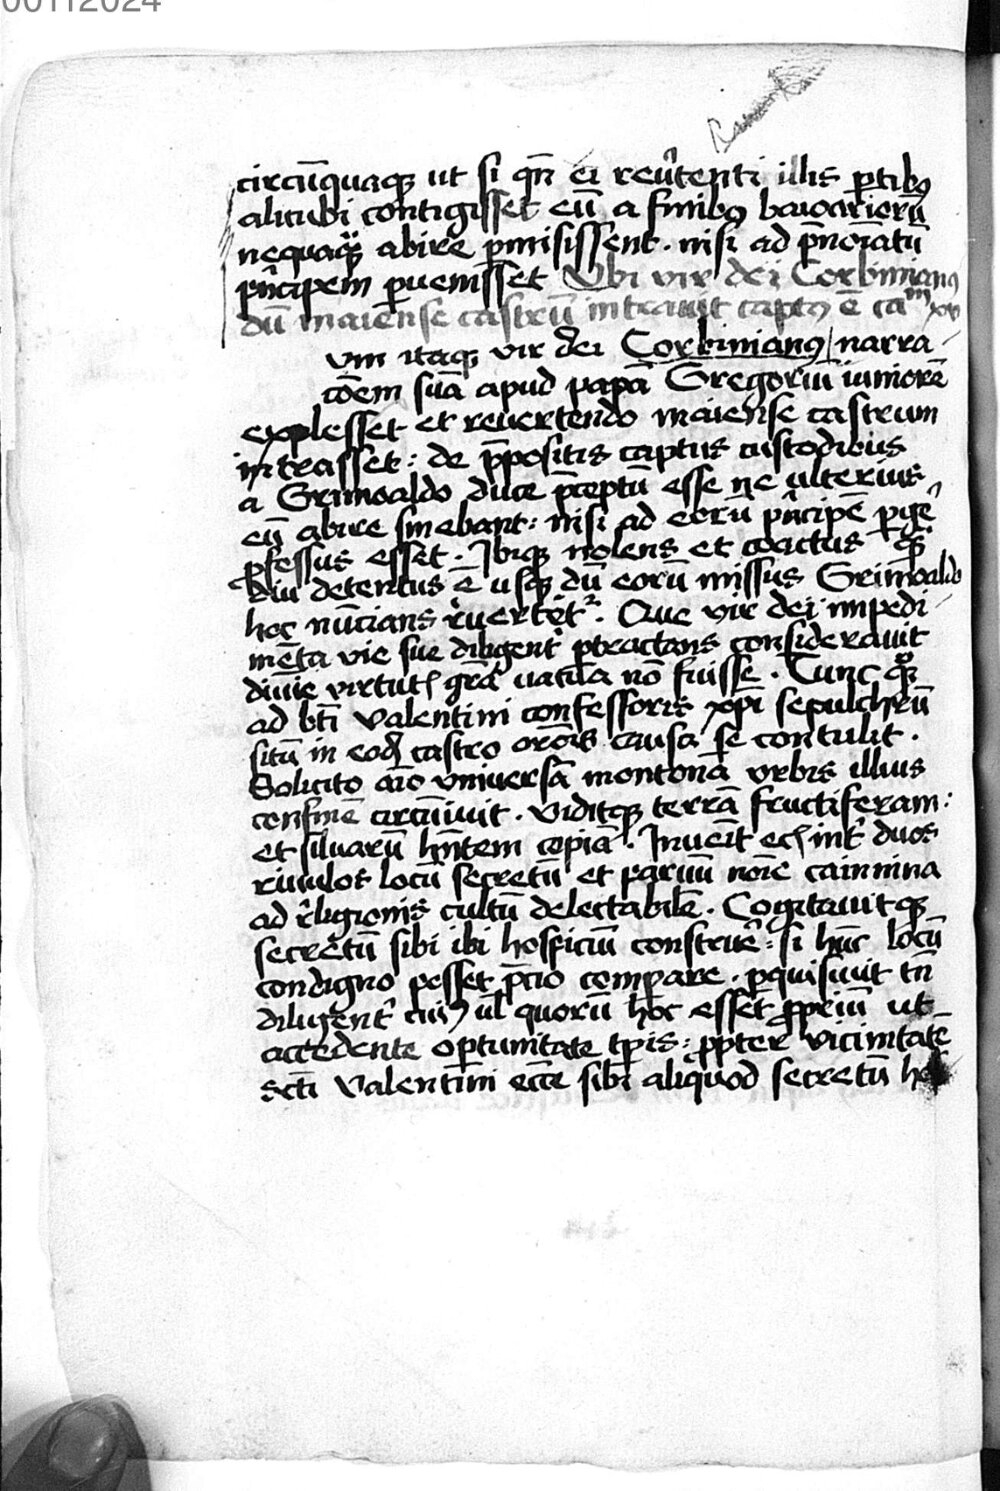 00112024
circū̄quaqꝫ ut si qn̄ ei reuͣtenti illis ꝑtibꝰ
alicubi contigisset eū a finibꝰ baioarioꝛū
nequaqͣꝫ abire ꝑmisissent . nisi ad p̄noīatū
pͥncipem ꝑuenisset Vbi vir dei Corbinianꝰ
dū maiense castrū intrauit captꝰ ē caᵐ xv
vm itaqꝫ vir dei Corbinianꝰ narra
cōem suā apud papā Gregoriū iuniorē
explesset et reuertendo maiense castrum
intrasset : de p̄positis captus custodibus
a Grimoaldo duce p̄ceptū esse ne ulterius
eū abire sinebant : nisi ad eorū pͥncipē ꝑgē
ꝓfessus esset . Ibiqꝫ nolens et coactus qͣꝫ
diu detentus ē usqꝫ dū eorū missus Grimoaldo
hoc nūcians rͤuertēt᷑ . Que vir dei impedi
mēta vie sue diligent᷑ ꝑtractans considerauit
diuīe virtutꝭ grā uacua nō fuisse . Tunc qͦꝫ
ad btī Valentini confessoris xp̄i sepulchrū
sitū in eod̄ castro orōis causa se contulit .
Solicito aīo vniuersā montanā vrbis illius
confinē circūiuit . Viditqꝫ terrā fructiferam :
et siluarū hn̄tem copiā . Inuēit ecꝭ int᷑ duos
riuulos locū secretū et paruū noīe cainnina
ad rͤligionis cultū delectabilē . Cogitauitqꝫ
secretū sibi ibi hospicium construeͬ : si hūc locū
condigno posset p̄cio compare . ꝑquisiuit tn̄
diligent᷑ cuiꝰ ul̄ quorū hoc esset ꝓpriū ut
accedente oꝑtunitate tꝑis : ꝓpter vicinitatē
sctī Valentini ecce sibi aliquod secretū